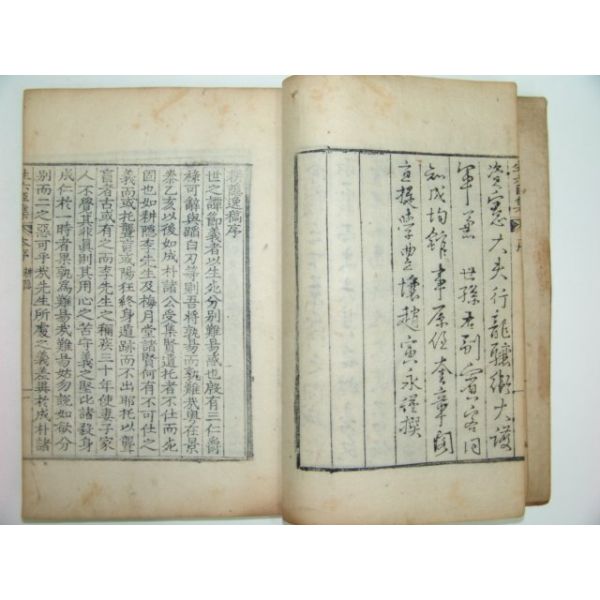 資憲大夫行龍驤衛大護
軍兼 世孫右副賓客同
知成均館事原任奎章閣
直提學豊壤趙寅永謹撰
耕隱逸稿序
世之譚節義者以生死分別難易惑也殷有三仁爵
祿可辭與蹈白刃等則吾將孰易而孰難哉粤在景
泰乙亥以後如成朴諸公受集賢遺托者不仕而死
固也如耕隱李先生及梅月堂諸賢何有不可仕之
義而或托聾盲或陽狂終身遺跡而不出昭托以聾
盲者古或有之而李先生之稱癈三十年使妻子家
人不覺其非眞則其用心之苦守義之堅比諸殺身
成仁於一時者果孰爲難易哉妨勿謊如獄分
別而二之惡可乎哉先生所處之義盖與成朴諸